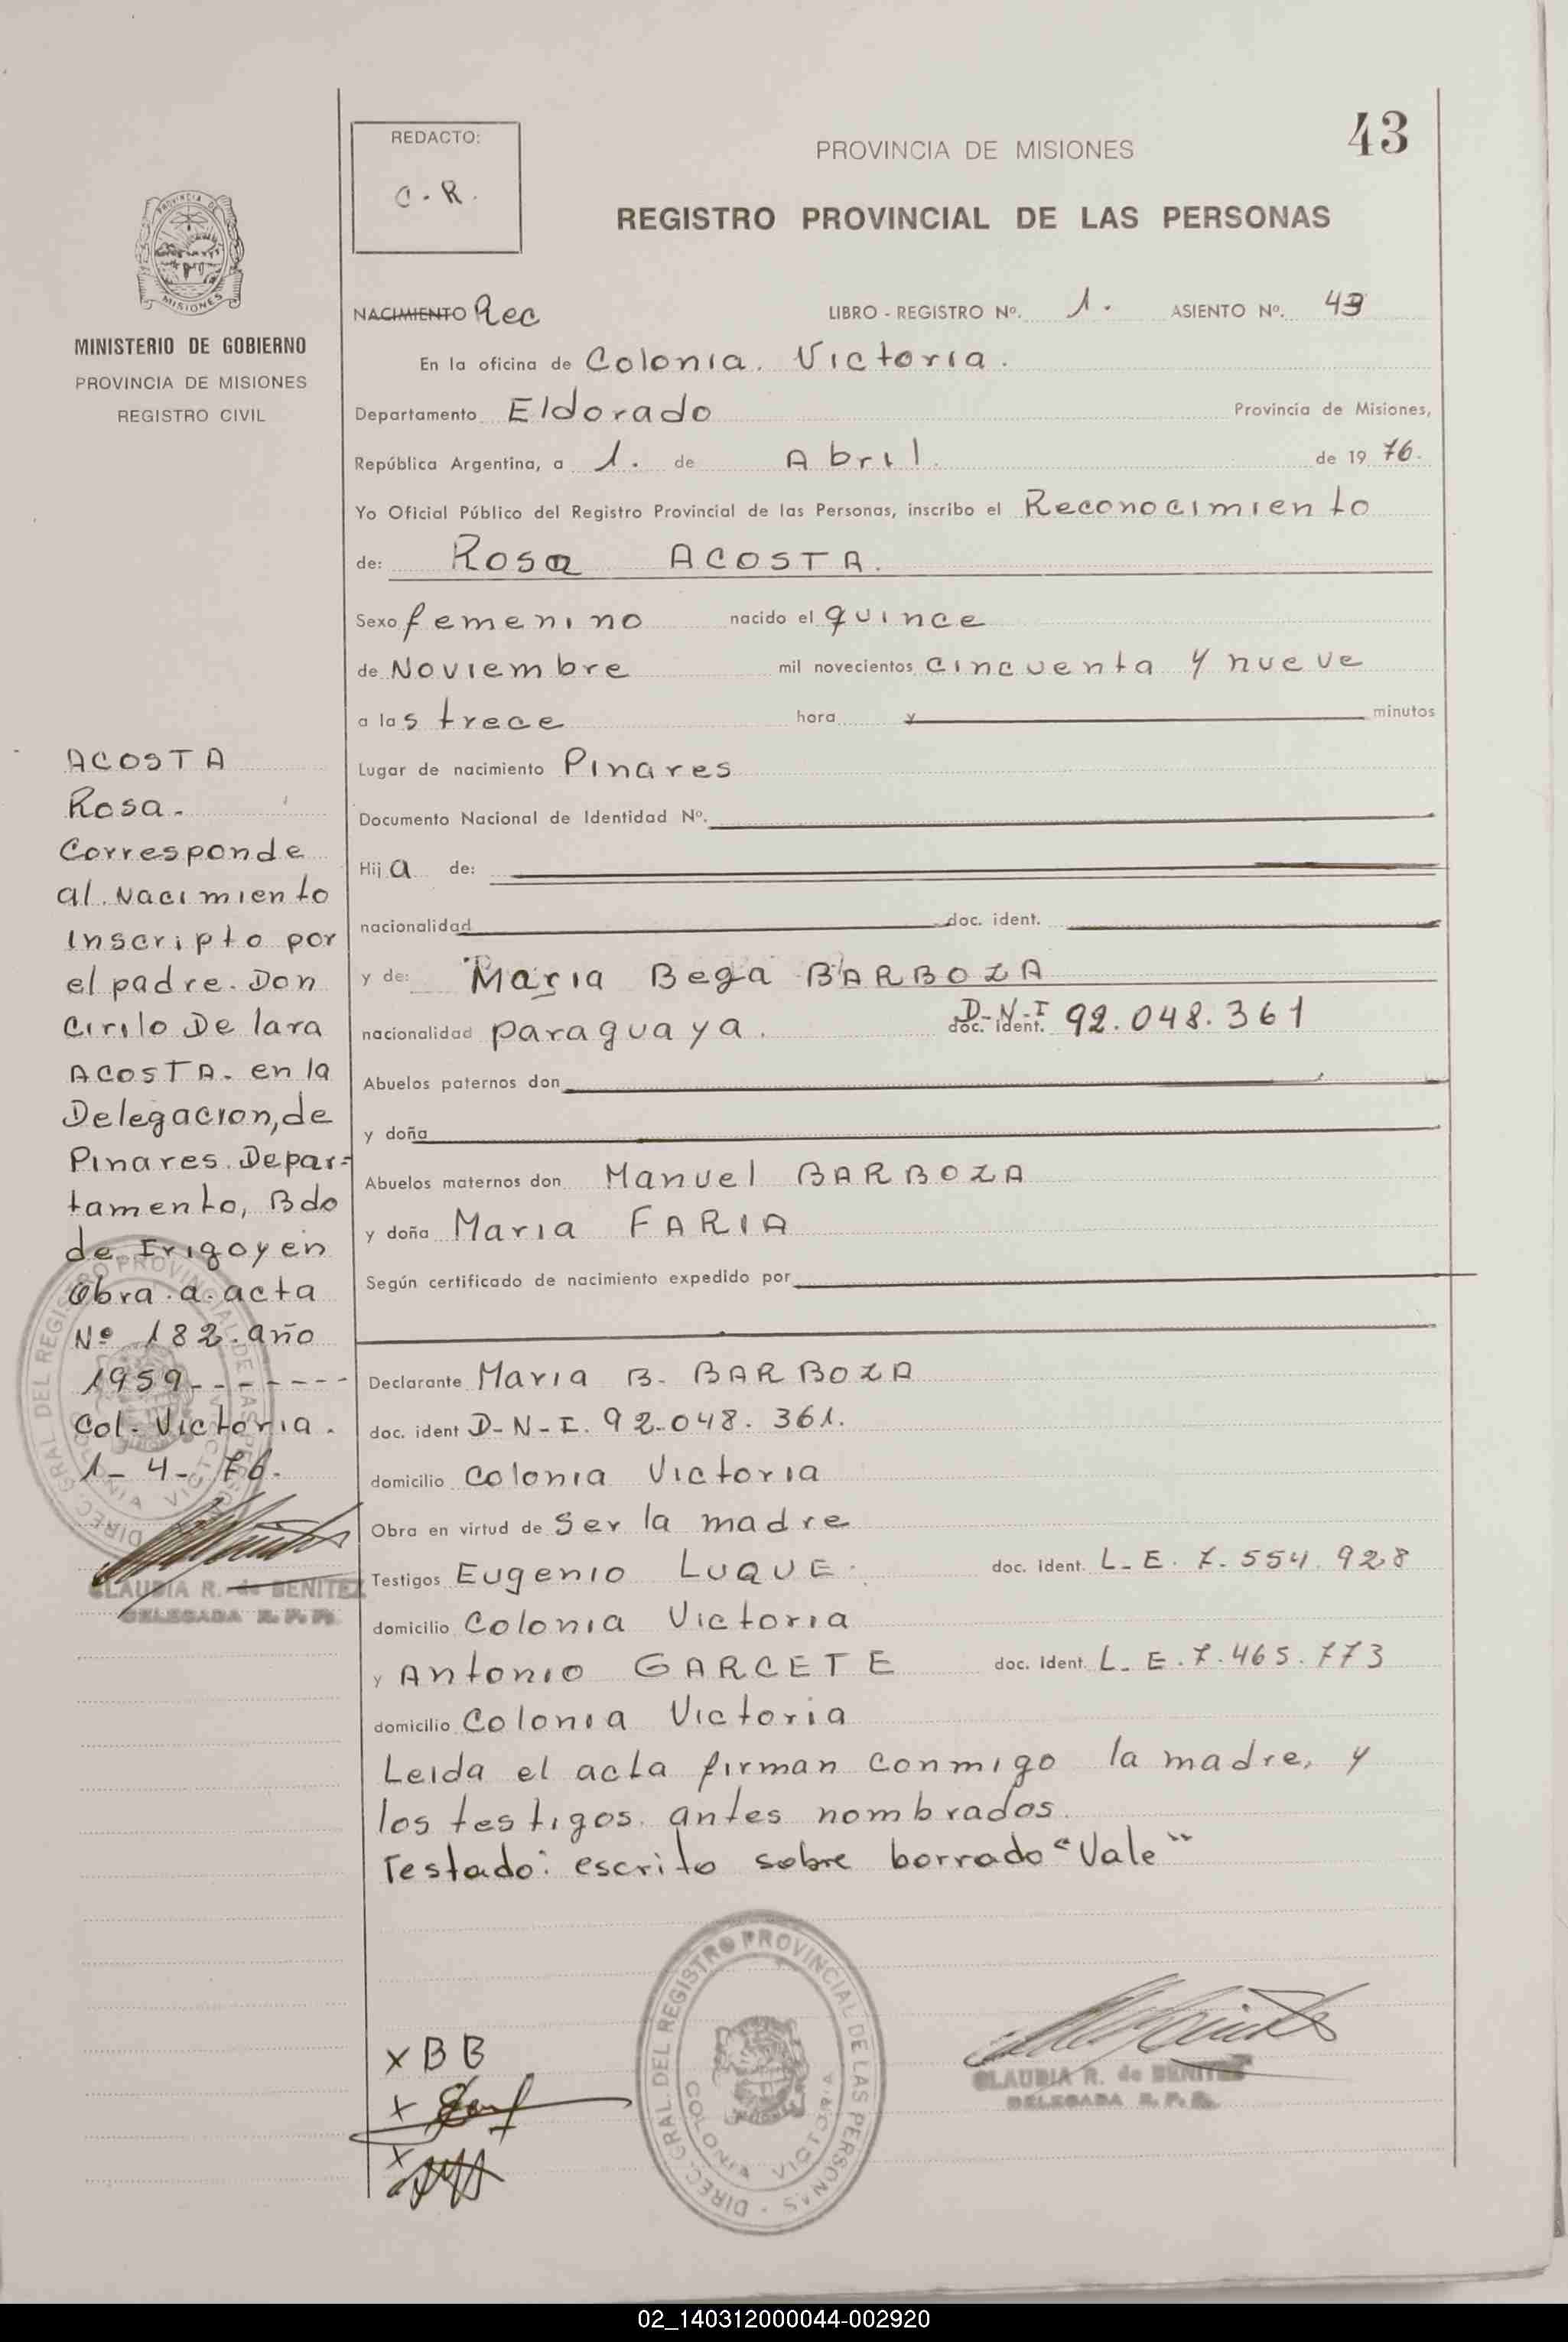 43
REDACTO:
C. R.
PROVINCIA DE MISIONES
REGISTRO PROVINCIAL DE LAS PERSONAS
PROVINCIA DE
MISIONES
MINISTERIO DE GOBIERNO
PROVINCIA DE MISIONES
REGISTRO CIVIL
NACIMIENTO Rec LIBRO - REGISTRO Nº. 1. ASIENTO Nº. 43
En la oficina de Colonia. Victoria.
Departamento Eldorado Provincia de Misiones,
República Argentina, a 1. de Abril. de 19 76.
Yo Oficial Público del Registro Provincial de las Personas, inscribo el Reconocimiento
de: Rosa ACOSTA.
Sexo femenino nacido el quince
de Noviembre mil novecientos cincuenta y nueve
a las trece hora y minutos
Lugar de nacimiento Pinares
Documento Nacional de Identidad Nº.
Hija de:
nacionalidad doc. ident.
y de: Maria Bega BARBOZA
nacionalidad paraguaya. D-N-I doc. ident. 92.048.361
Abuelos paternos don
y doña
Abuelos maternos don Manuel BARBOZA
y doña Maria FARIA
Según certificado de nacimiento expedido por
Declarante Maria B. BARBOZA
doc. ident D-N-I. 92.048.361.
domicilio Colonia Victoria
Obra en virtud de Ser la madre
Testigos Eugenio LUQUE. doc. ident. L-E. 7.554.928
domicilio Colonia Victoria
y Antonio GARCETE doc. ident. L-E.7.465.773
domicilio Colonia Victoria
Leida el acta firman conmigo la madre, y
los testigos antes nombrados.
Testado: escrito sobre borrado "Vale"
ACOSTA
Rosa.
Corresponde
al. Nacimiento
Inscripto por
el padre. Don
Cirilo De lara
ACOSTA. en la
Delegacion, de
Pinares. Depar=
tamento, Bdo
de Irigoyen
Obra a acta
Nº 182. año
1959-------
Col. Victoria.
1-4-76.
DIREC. GRAL. DEL REGISTRO PROVINCIAL DE LAS PERSONAS
COLONIA VICTORIA
CLAUDIA R. de BENITEZ
DELEGADA R. P. P.
x B B
x
x
DIREC. GRAL. DEL REGISTRO PROVINCIAL DE LAS PERSONAS
COLONIA VICTORIA
CLAUDIA R. de BENITEZ
DELEGADA R. P. P.
02_140312000044-002920